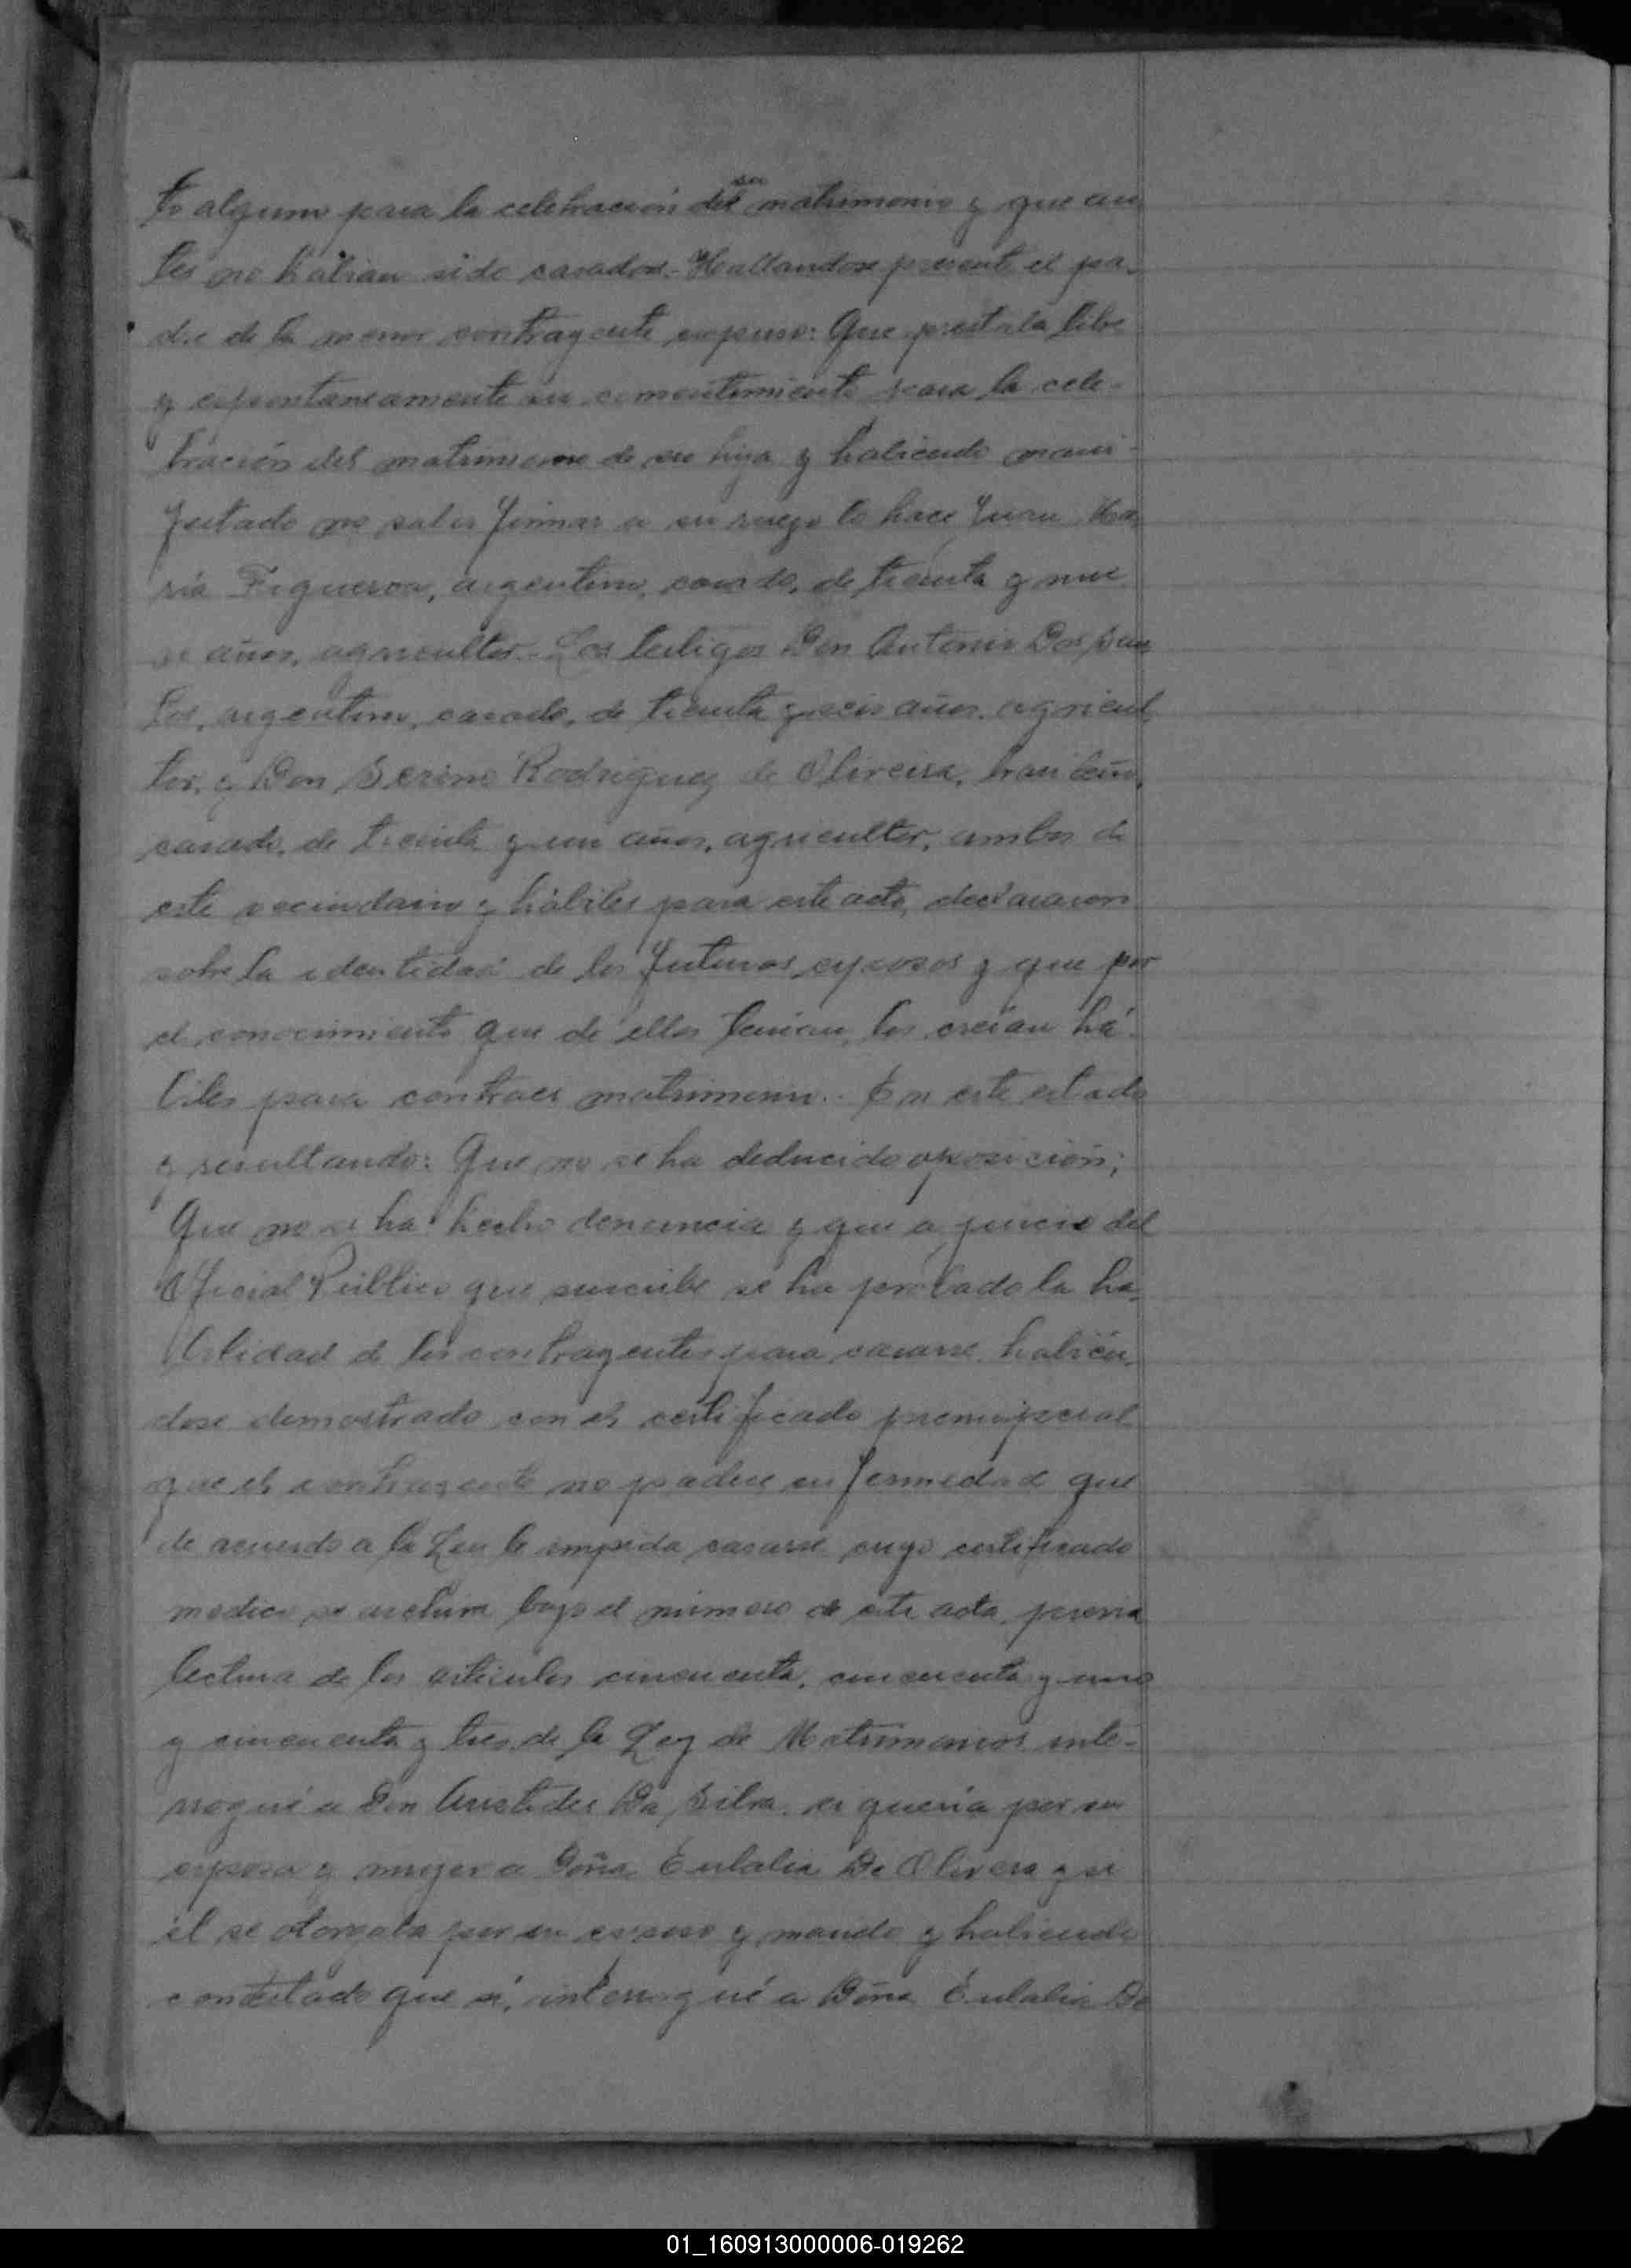 to alguno para la celebración del su matrimonio y que an
tes no habian sido casados.- Hallandose presente el pa-
dre de la menor contrayente expuso: Que prestaba libre
y espontaneamente su consentimiento para la cele-
bración del matrimonio de su hija y habiendo mani-
festado no saber firmar a su ruego lo hace Juan Ma
ria Figueroa, argentino, casado, de treinta y nue
ve años, agricultor.- Los testigos Don Antonio Dos San
tos, argentino, casado, de treinta y seis años, agricul
tor, y Don Serino Rodriguez de Olireira, brasileño,
casado, de treinta y un años, agricultor, ambos de
este vecindario y hábiles para este acto, declararon
sobre la identidad de los futuros esposos y que por
el conocimiento que de ellos tenian, los creían há-
biles para contraer matrimonio.- En este estado
y resultando: Que no se ha deducido oposición;
Que no se ha hecho denuncia y que a juicio del
Oficial Público que suscribe se ha probado la ha-
bilidad de los contrayentes para casarse, habién-
dose demostrado con el certificado prenupcial
que el contrayente no padece enfermedad que
de acuerdo a la Ley le impida casarse cuyo certificado
medico se archiva bajo el número de esta acta, previa
lectura de los articulos cincuenta, cincuenta y uno
y cincuenta y tres de la Ley de Matrimonios inte-
rrogué a Don Aristides Da Silva, si quería por su
esposa y mujer a Doña Eulalia De Olivera y si
él se otorgaba por su esposo y marido y habiendo
contestado que sí, interrogué a Doña Eulalia De
01_160913000006-019262